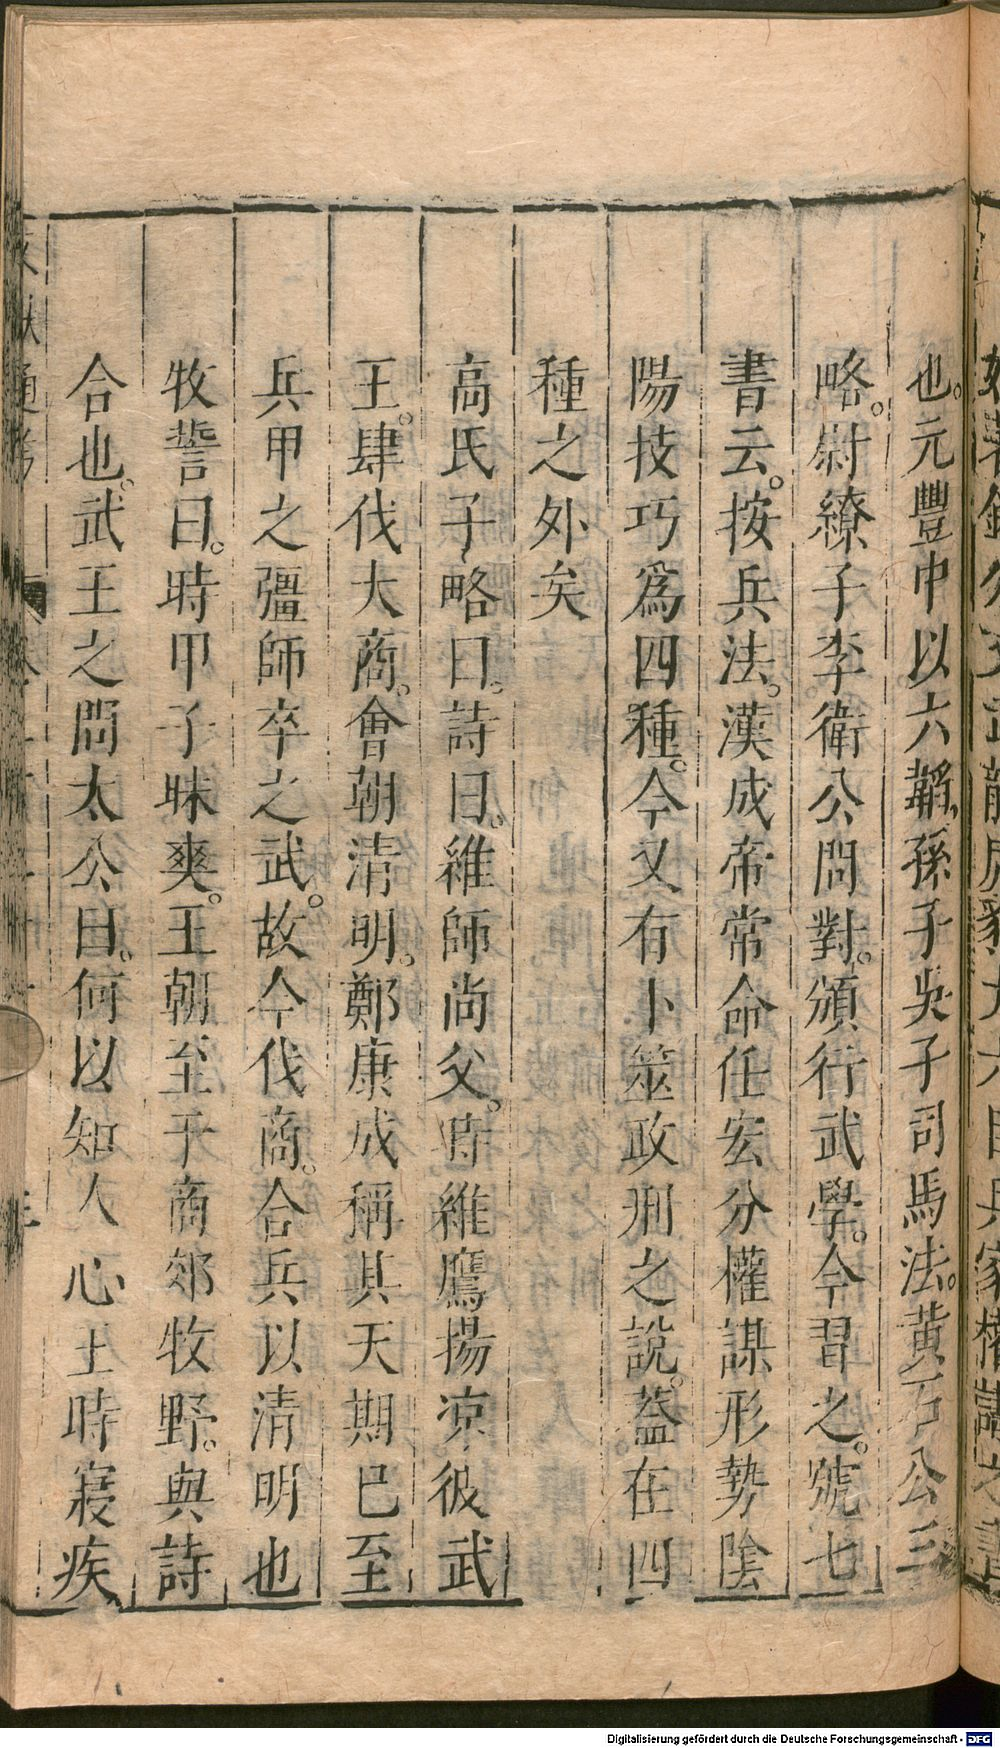 也。元豐中以六韜、孫子吳子司馬法。黃石公三
略。尉繚子李衛公問對。頒行武學。今習之。號七
書云。按兵法。漢成帝常命任宏分權謀形勢陰
陽技巧爲四種。今又有卜筮政刑之說。葢在四
種之外矣
高氏子略曰。詩曰。維師尚父。時維鷹揚凉彼武
王。肆伐大商。會朝清明。鄭康成稱其天期已至
兵甲之彊師卒之武。故今伐商。合兵以清明也
牧誓曰。時甲子昧爽。王朝至于商郊牧野。與詩
合也。武王之問太公曰。何以知人心王時寢疾
Digitalisierung gefördert durch die Deutsche Forschungsgemeinschaft - DFG